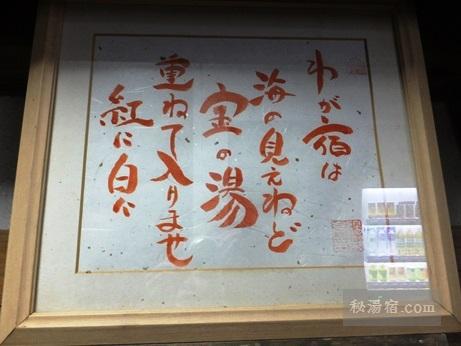 わが宿は
海の見えねど
宝の湯
重ねて入りませ
紅に白に
秘湯宿.com